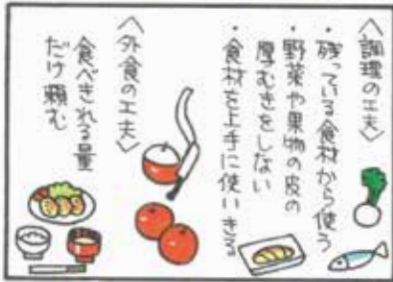 〈調理の工夫〉
・残っている食材から使う
・野菜や果物の皮の
厚むきをしない
・食材を上手に使いきる
〈外食の工夫〉
食べきれる量
だけ頼む